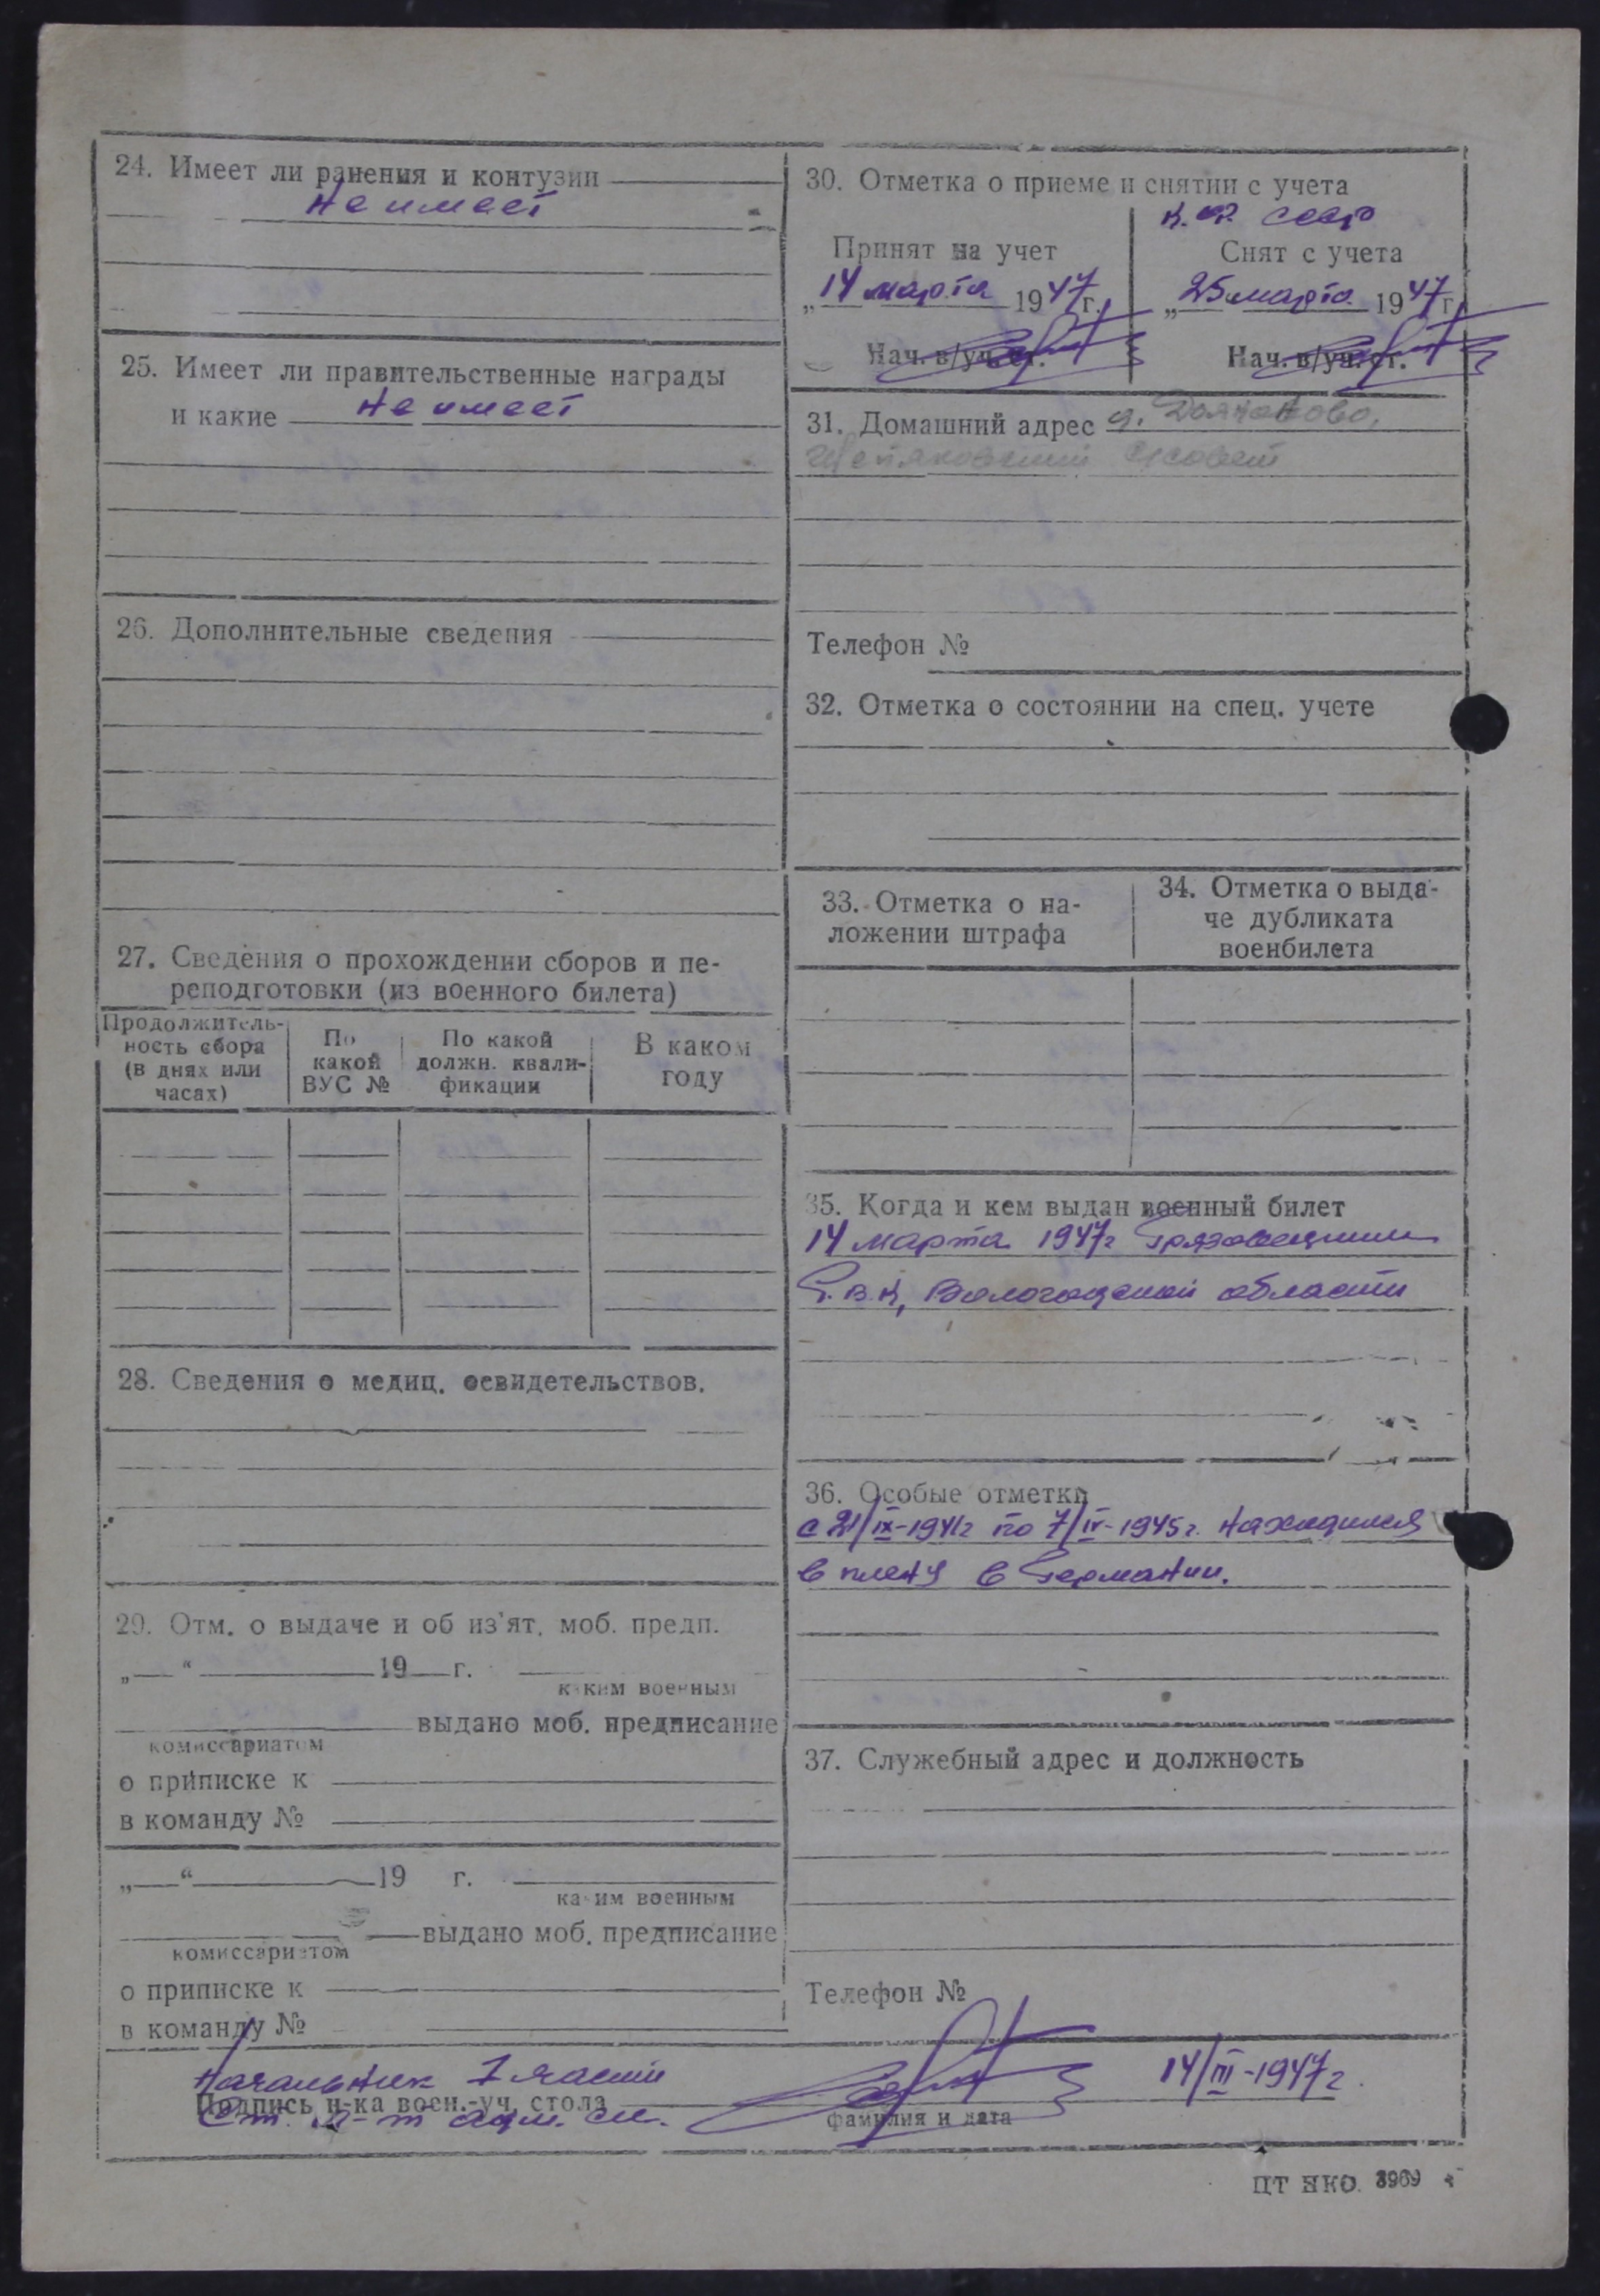 24. Имеет ли ранения и контузии
не имеет
25. Имеет ли правительственные награды
и какие не имеет
26. Дополнительные сведения
27. Сведения о прохождении сборов и пе-
реподготовки (из военного билета)
Продолжитель-
ность сбора
(в днях или
часах)
По
какой
ВУС №
По какой
должн. квали-
фикации
В каком
году
28. Сведения о медиц. освидетельствов.
29. Отм. о выдаче и об из'ят. моб. предп.
„ “ 19 г.
каким военным
выдано моб. предписание
комиссариатом
о приписке к
в команду №
„ “ 19 г.
каким военным
выдано моб. предписание
комиссариатом
о приписке к
в команду №
30. Отметка о приеме и снятии с учета
Принят на учет
„14 марта 1947г.
Нач. в/уч. ст.
Снят с учета
„25 марта 1947г.
Нач. в/уч. ст.
31. Домашний адрес д.
Телефон №
32. Отметка о состоянии на спец. учете
33. Отметка о на-
ложении штрафа
34. Отметка о выда-
че дубликата
военбилета
35. Когда и кем выдан военный билет
14 марта 1947г Грязовецким
Р.В.К, Вологодской области
36. Особые отметки
с 21/IX-1941г по 7/IV-1945г. находился
в плену в Германии.
37. Служебный адрес и должность
Телефон №
Начальник 1 части
Подпись н-ка воен.-уч. стола
Ст. л-т адм. сл.
фамилия и дата
14/III-1947г.
ЦТ НКО. 3969